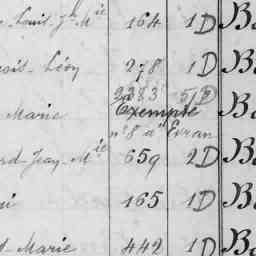 Louis Jh Mie 164 1D B
Léon 278 1D B
2283 5/D
Marie Exempté B
n° 8 d'Evran
Jean-Mie 659 2D B
165 1D B
Marie 442 1D B